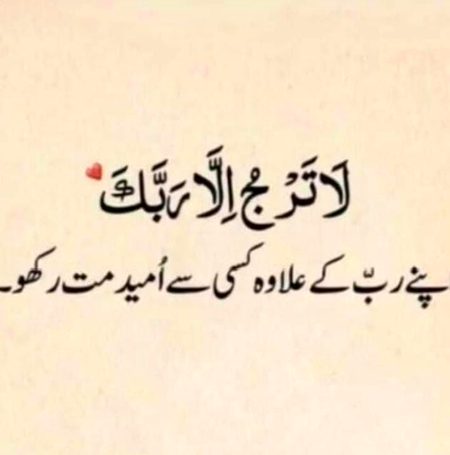 لَا تَرْجُ اِلَّا رَبَّكَ
اپنے ربّ کے علاوہ کسی سے اُمید مت رکھو۔